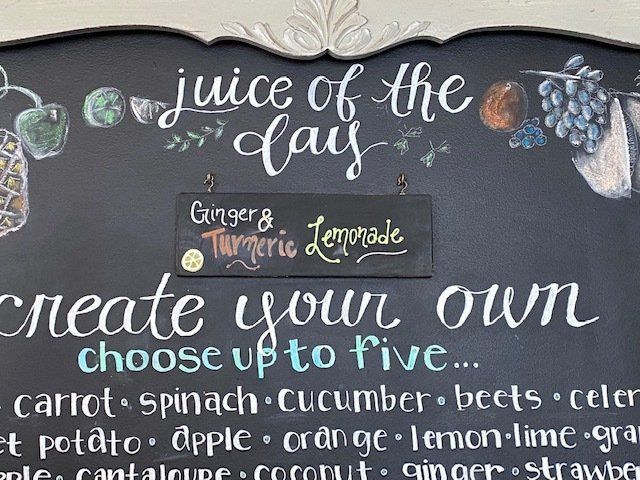 juice of the
day
Ginger &
Turmeric Lemonade
create your own
choose up to five...
• carrot • spinach • cucumber • beets • celer
et potato • apple • orange • lemon • lime • gra
pple • cantaloupe • coconut • ginger • strawbe